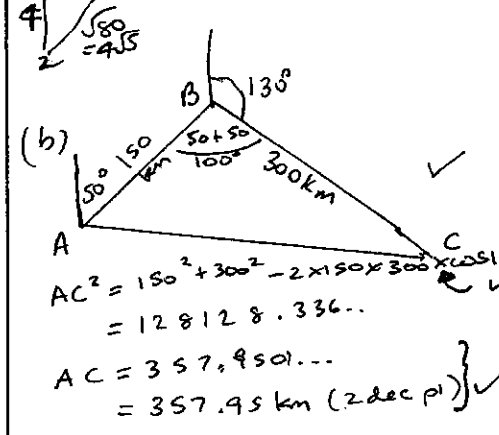 4
√80
2 =4√5
B 130°
(b) 50° 150 km 50+50 100° 300km
A C
AC² = 150² + 300² - 2×150×300×cos1
= 128128.336..
AC = 357.9501...
= 357.95 km (2 dec pl)